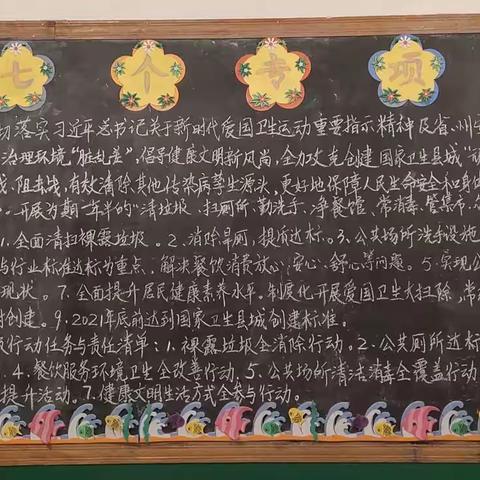 七个专项
切落实习近平总书记关于新时代爱国卫生运动重要指示精神及省、州
治理环境"脏乱差",倡导健康文明新风尚,全力攻克创建国家卫生县城"
战、阻击战,有效消除其他传染病孳生源头,更好地保障人民生命安全和身体
。开展为期一年半的"清垃圾、扫厕所、勤洗手、净餐馆、常消毒、管集市、
1.全面清扫裸露垃圾。2.消除旱厕,提质达标。3.公共场所洗手设施
与行业标准达标为重点,解决餐饮消费放心、安心、舒心等问题。5.实现公
现状。7.全面提升居民健康素养水平。制度化开展爱国卫生大扫除,常
创建。9.2021年底前达到国家卫生县城创建标准。
行动任务与责任清单:1.裸露垃圾全消除行动,2.公共厕所达标
.4.餐饮服务环境卫生全改善行动,5.公共场所清洁消毒全覆盖行动
提升活动。7.健康文明生活方式全参与行动。